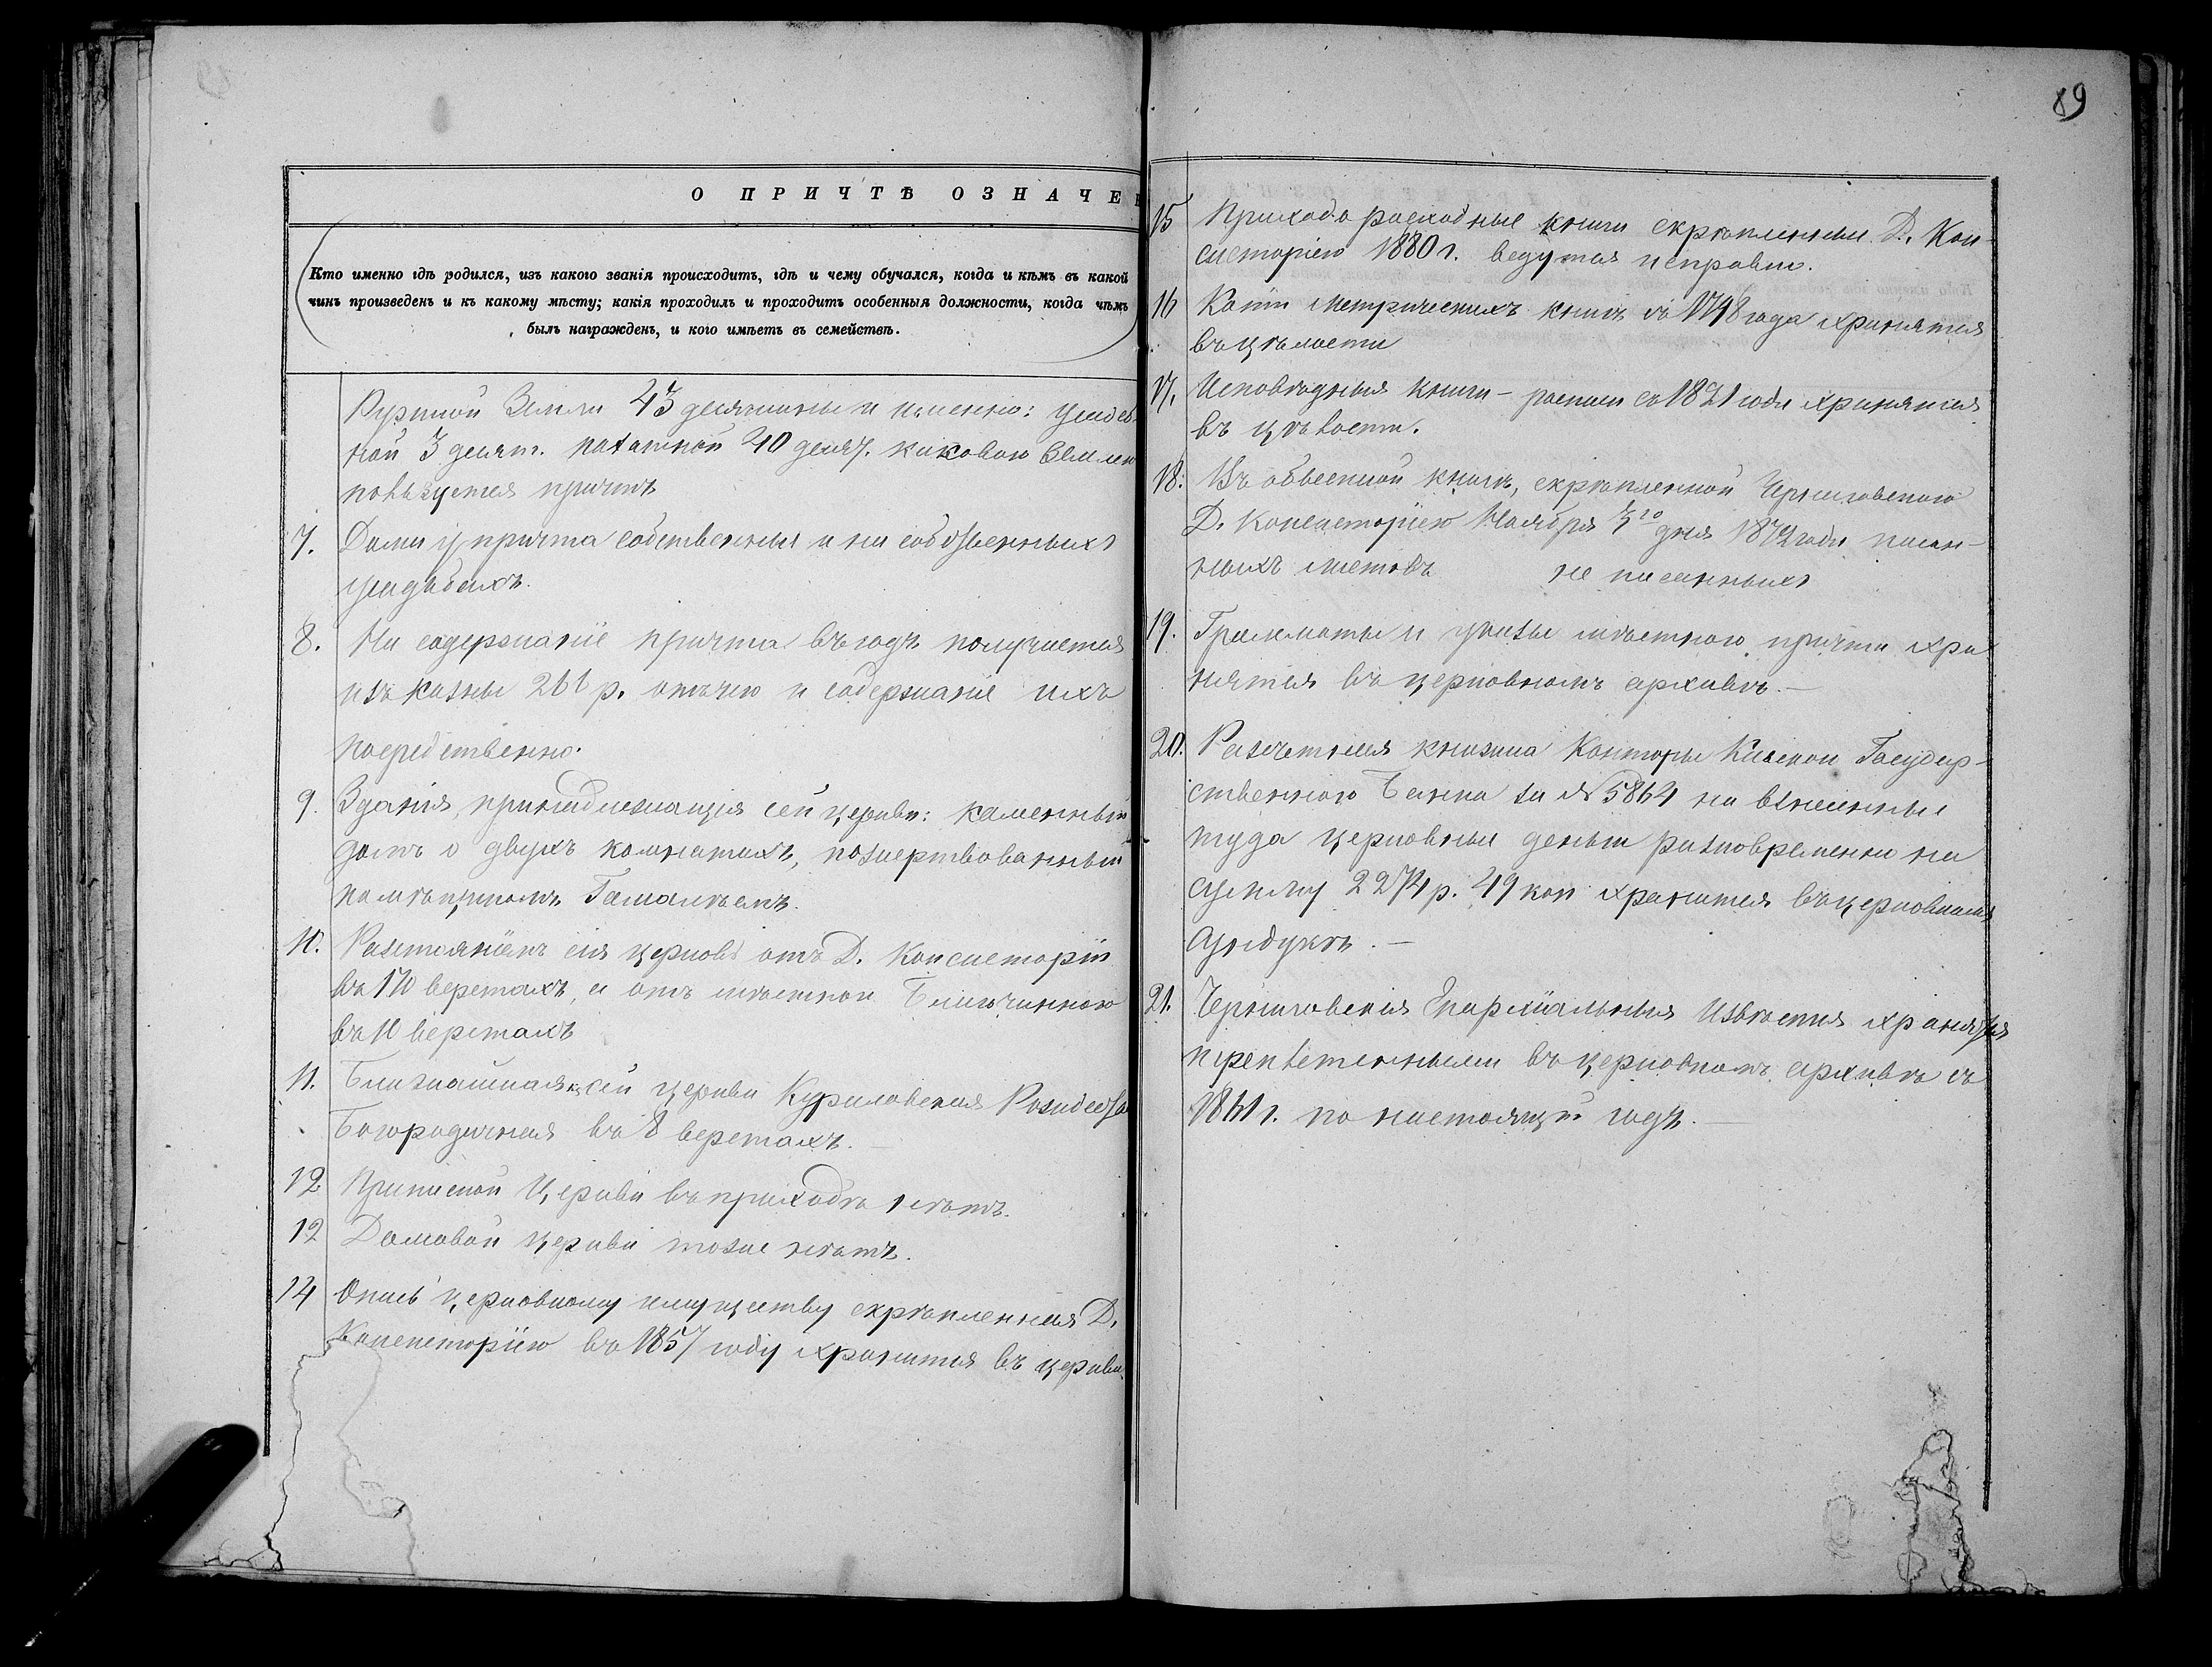 89
О ПРИЧТѢ ОЗНАЧЕН
Кто именно гдѣ родился, изъ какого званія происходитъ, гдѣ и чему обучался, когда и кѣмъ въ какой
чинъ произведенъ и къ какому мѣсту; какія проходилъ и проходитъ особенныя должности, когда чѣмъ
былъ награжденъ, и кого имѣетъ въ семействѣ.
Ружной Земли 43 десятины и именно: усадеб-
ной 3 десят. пахатной 40 десят. каковою Землею
пользуется причтъ
7. Домы у причта собственныя и на собственныхъ
усадьбахъ.
8. На содержаніе причта въ годъ получается
изъ казны р. отъчего и содержаніе ихъ
посредственно.
9. Зданія, принадлежащія сей церкви: каменный
домъ о двухъ комнатахъ, пожертвованный
помѣщикомъ Гамалѣемъ.
10. Разстояніемъ сія церковь отъ Д. Консисторіи
въ 170 верстахъ, а отъ мѣстнаго Благочиннаго
въ 10 верстахъ
11. Ближайшая къ сей церкви Куриловская Рождество
Богородичная въ 8 верстахъ.
12 Приписной Церкви въ приходѣ нѣтъ.
12 Домовой церкви тоже нѣтъ.
14 Опись церковному имуществу скрѣпленная Д.
Консисторіею въ 1857 году хранится въ церкви.
15 Приходо расходные книги скрѣпленныя Д. Кон-
систоріею 1880 г. ведутся исправно.
16 Копіи метрическихъ книгъ съ 1748 года хранятся
въ цѣлости
17. Исповѣдныя книги - росписи съ 1821 года хранятся
въ цѣлости.
18. Въ обыскной книгѣ, скрѣпленной Черниговскою
Д. Консисторіею Ноября 3го дня 1872 года писан-
ныхъ листовъ не писанныхъ
19. Граматы и указы мѣстного причта хра
нятся въ церковномъ архивѣ. —
20. Разчетная книжка Конторы Кіевской Государ-
ственного Банка за № 5864 на взнесенныя
туда церковныя деньги разновременно на
сумму 2274 р. 49 коп хранится въ церковномъ
сундукѣ. —
21. Черниговскія Епархіальныя Извѣстія хранятся
переплетенными въ церковномъ архивѣ съ
1861 г. по настоящій годъ. —